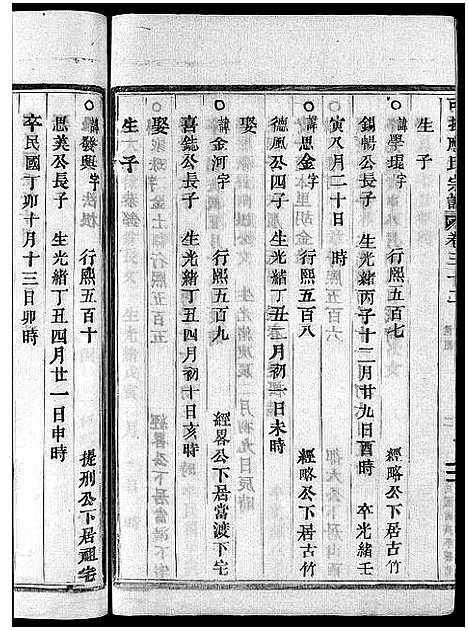 生 子
○諱學琨字 行熙五百七 經略公下居古竹
錫暢公長子 生光緒丙子十二月廿九日酉時 卒光緒壬
寅八月二十日 時
○諱思金字 行熙五百八 經略公下居古竹
德風公四子 生光緒丁丑二月初一日未時
娶
○諱金河字 行熙五百九 經畧公下居當渡下宅
喜銑公長子 生光緒丁丑四月初十日亥時
娶
生 子
○諱發興字 行熙五百十 提刑公下居祖宅
思美公長子 生光緒丁丑四月廿一日申時
卒民國丁卯十月十三日卯時